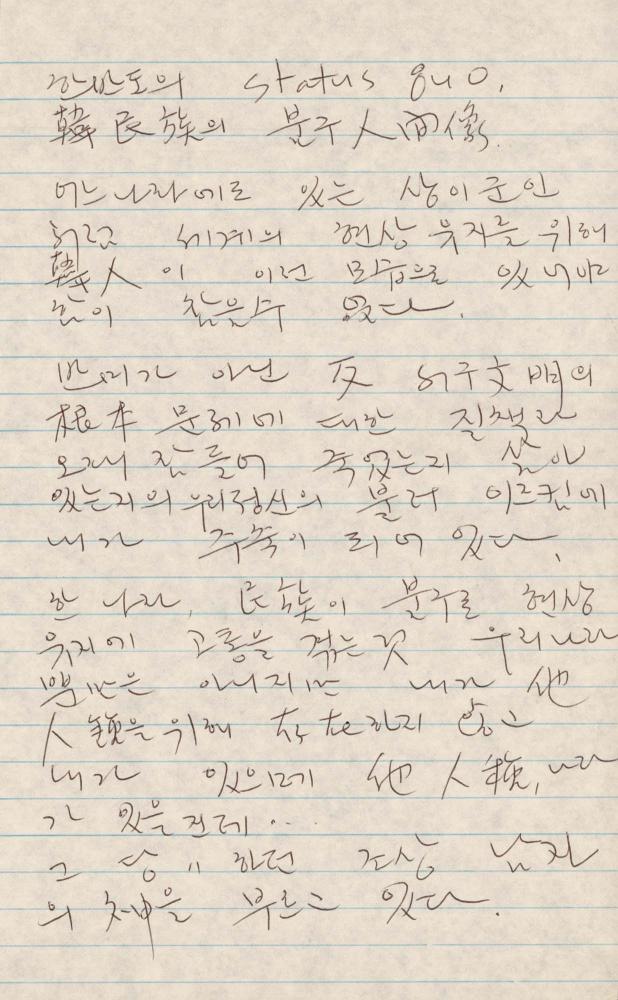 한반도의 status quo,
韓民族의 불구人間像.
어느나라에로 있는 상이군인
처럼 세계의 현상유지를 위해
韓人이 이런 모습으로 있어야
함이 참을수 없다.
반미가 아닌 反 서구文明의
根本 문제에 대한 질책과
오래 잠들어 죽었는지 살아
있는지의 우리정신의 불러 이르킴에
내가 주축이 되어 있다.
한 나라, 民族이 불구로 현상
유지에 고통을 겪는 것 우리나라
뿐만은 아니지만 내가 他
人種을 위해 存在하지 않고
내가 있으매 他人種, 나라
가 있을진데...
그 당당하던 조상 남자
의 神을 부르고 있다.